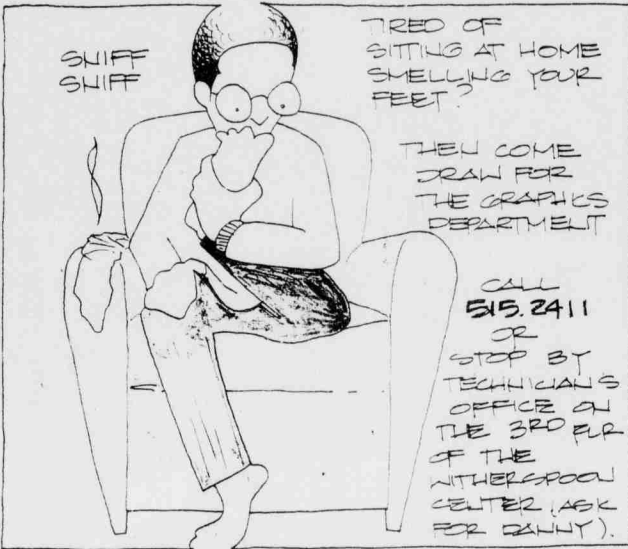 SNIFF
SNIFF
TIRED OF
SITTING AT HOME
SMELLING YOUR
FEET?
THEN COME
DRAW FOR
THE GRAPHICS
DEPARTMENT
CALL
515.2411
OR
STOP BY
TECHNICIAN'S
OFFICE ON
THE 3RD FLR
OF THE
WITHERSPOON
CENTER (ASK
FOR DANNY).